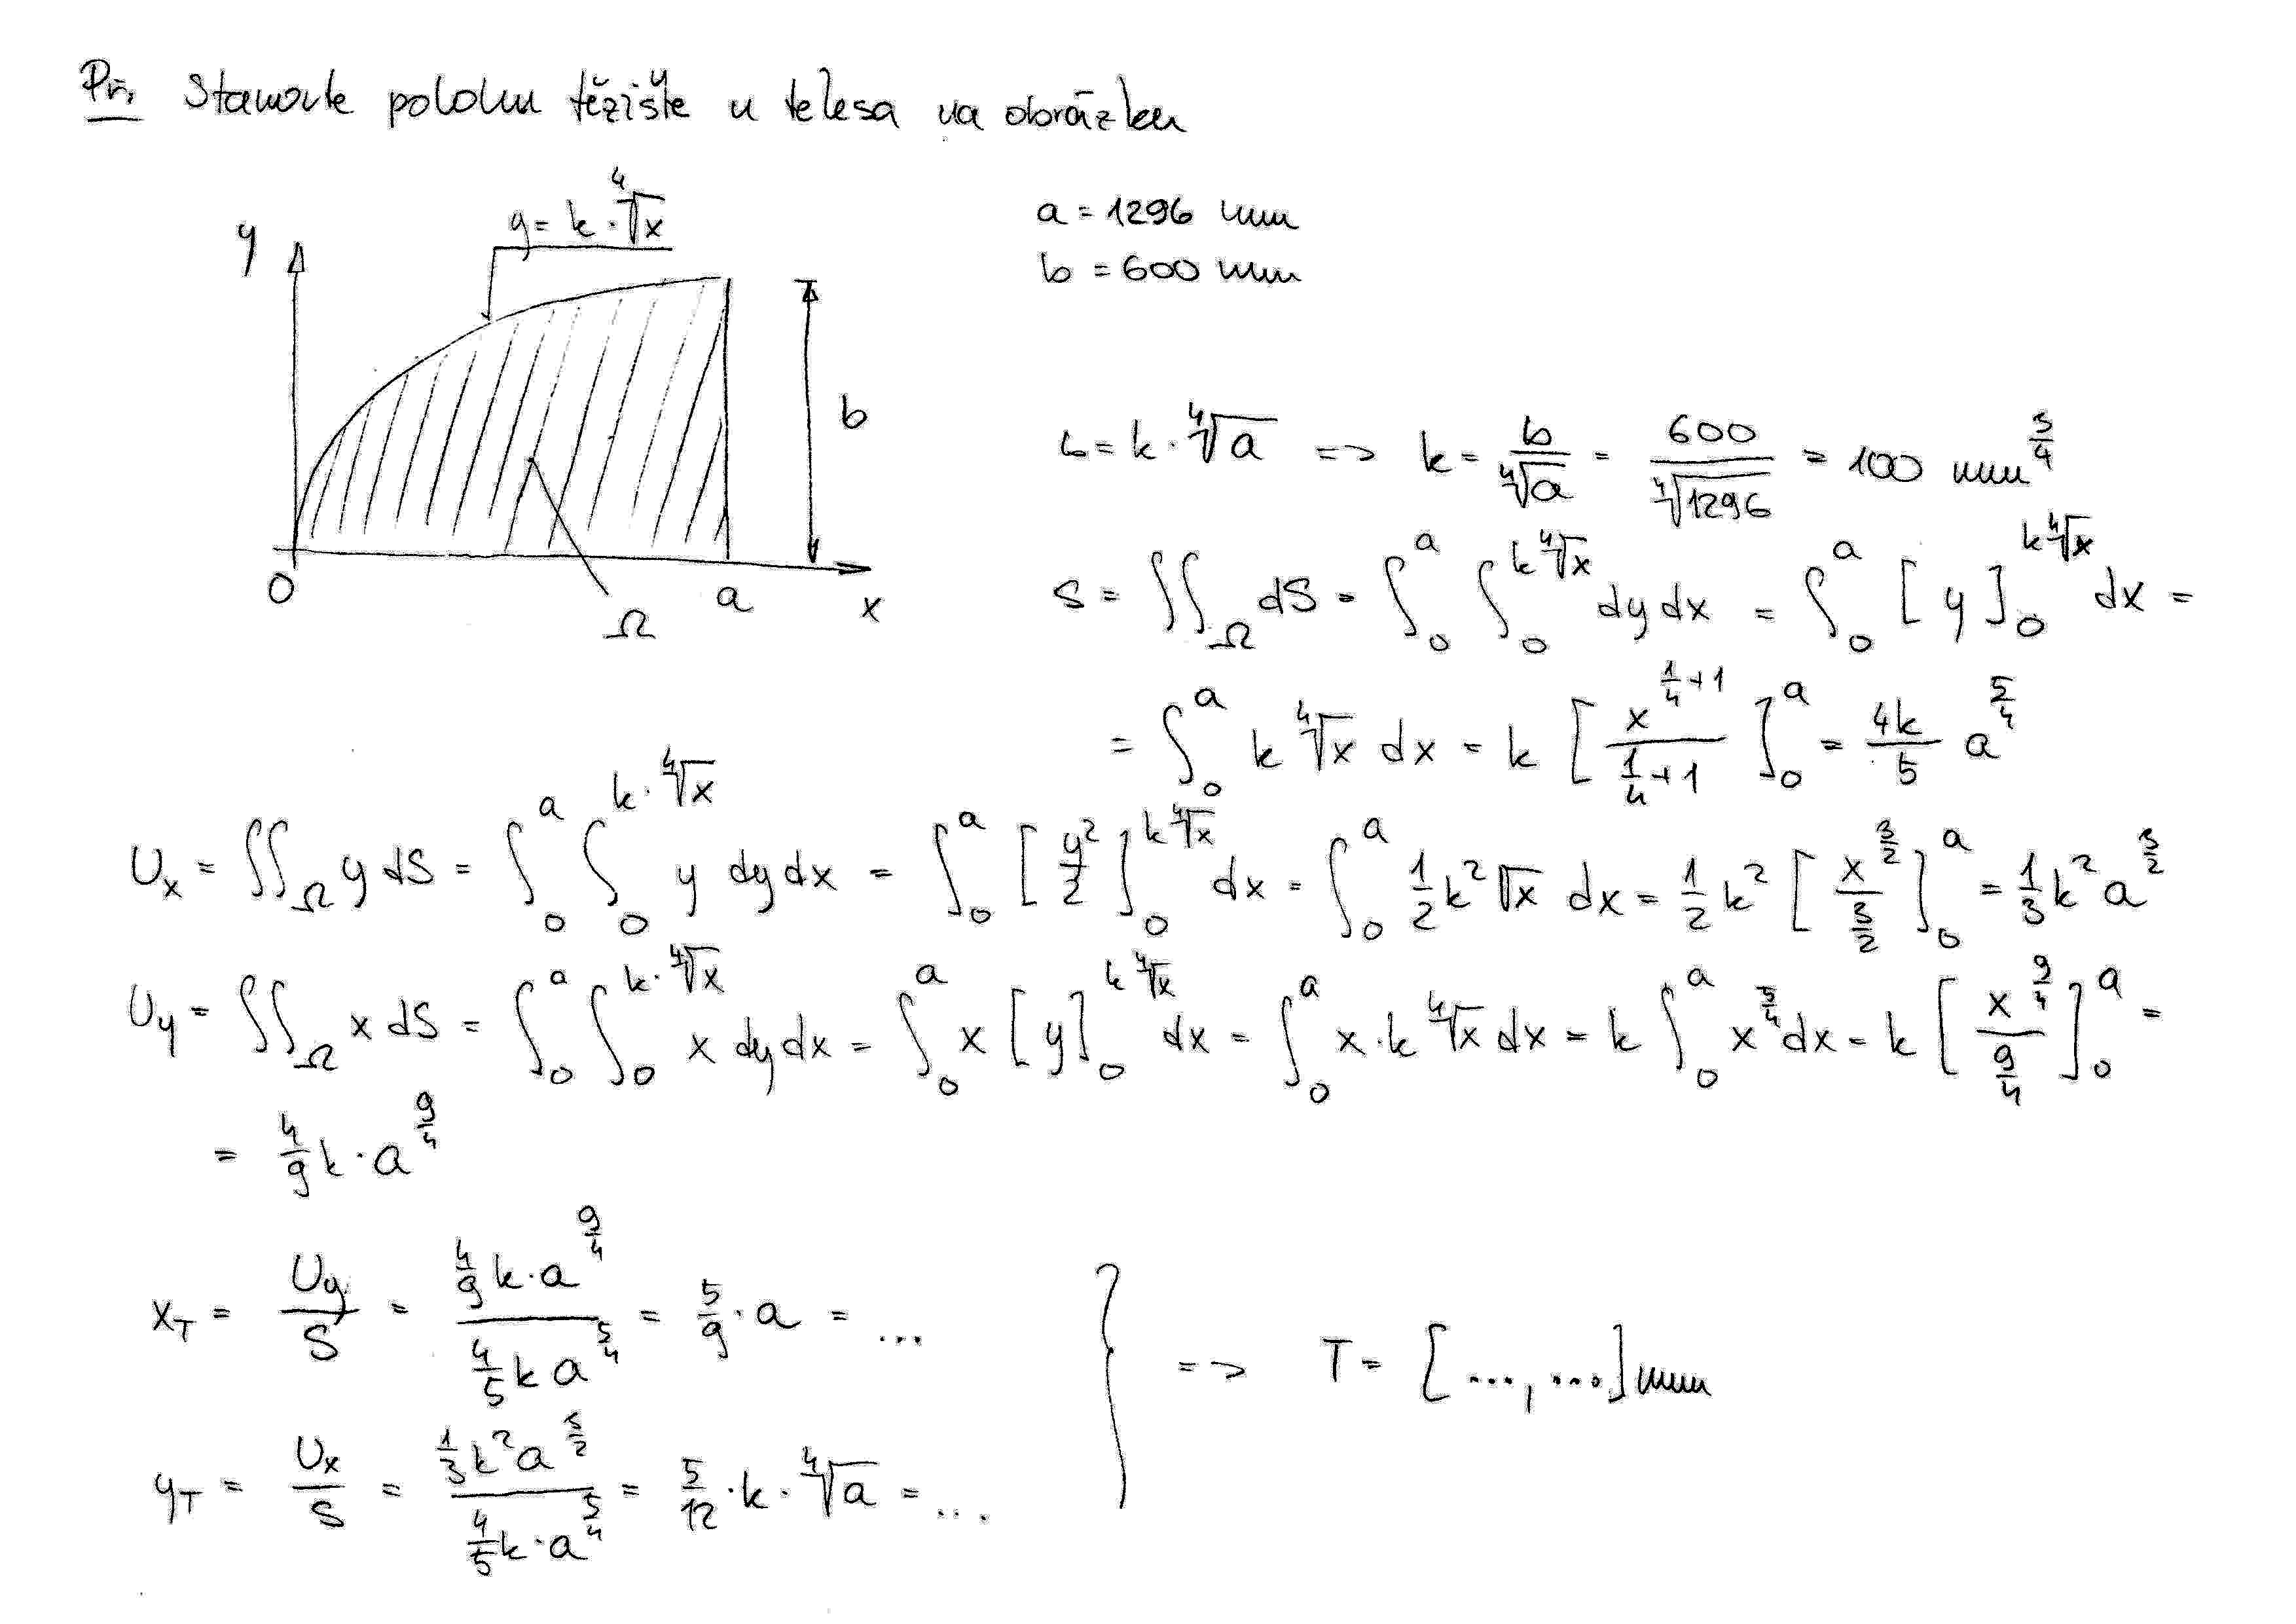 Př, Stanovte polohu těžiště u telesa na obrázku
y = k · ∜x
y
a = 1296 mm
b = 600 mm
b
0
a
x
Ω
b = k · ∜a => k = b/∜a = 600/∜1296 = 100 mm^(3/4)
S = ∬_Ω dS = ∫_0^a ∫_0^(k∜x) dy dx = ∫_0^a [y]_0^(k∜x) dx =
= ∫_0^a k ∜x dx = k [x^(1/4+1)/(1/4+1)]_0^a = 4k/5 a^(5/4)
U_x = ∬_Ω y dS = ∫_0^a ∫_0^(k·∜x) y dy dx = ∫_0^a [y²/2]_0^(k∜x) dx = ∫_0^a 1/2 k² √x dx = 1/2 k² [x^(3/2)/(3/2)]_0^a = 1/3 k² a^(3/2)
U_y = ∬_Ω x dS = ∫_0^a ∫_0^(k·∜x) x dy dx = ∫_0^a x [y]_0^(k∜x) dx = ∫_0^a x·k ∜x dx = k ∫_0^a x^(5/4) dx = k [x^(9/4)/(9/4)]_0^a =
= 4/9 k · a^(9/4)
x_T = U_y/S = (4/9 k·a^(9/4))/(4/5 k a^(5/4)) = 5/9 · a = ...
} => T = [..., ...] mm
y_T = U_x/S = (1/3 k² a^(3/2))/(4/5 k·a^(5/4)) = 5/12 · k · ∜a = ...